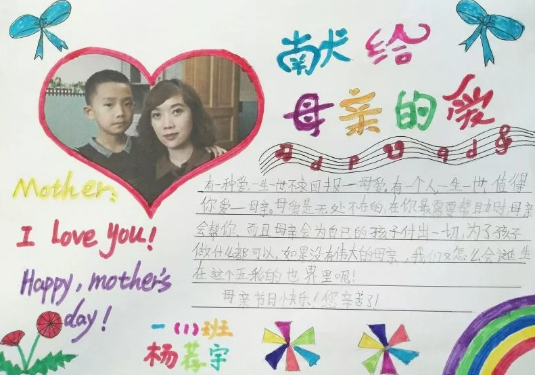 献给
母亲的爱
Mother:
I love you!
Happy, mother's
day!
有一种爱一生一世不求回报——母爱,有一个人一生一世值得
你爱——母亲。母爱是无处不在的,在你最需要帮助时母亲
会帮你,而且母亲会为自己的孩子付出一切,为了孩子
做什么都可以,如果没有伟大的母亲,我们又怎么会诞生
在这个五彩的世界里呢!
母亲节日快乐!您辛苦了!
一(1)班
杨荐宇